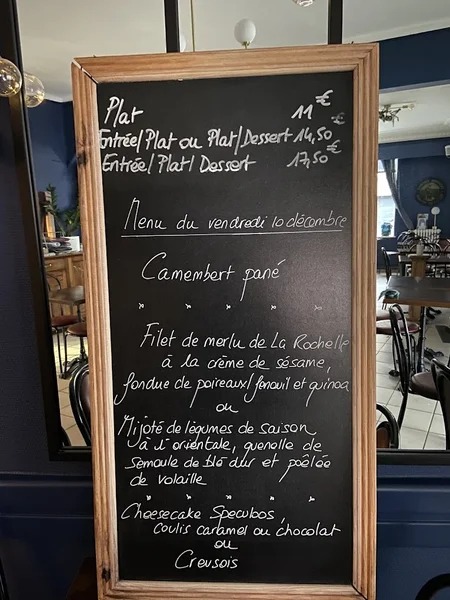 Plat 11 €
Entrée/Plat ou Plat/Dessert 14,50 €
Entrée/Plat/Dessert 17,50 €
Menu du vendredi 10 décembre
Camembert pané
Filet de merlu de La Rochelle
à la crème de sésame,
fondue de poireaux/fenouil et quinoa
ou
Mijoté de légumes de saison
à l'orientale, quenelle de
semoule de blé dur et poêlée
de volaille
Cheesecake Speculoos,
coulis caramel ou chocolat
ou
Creusois